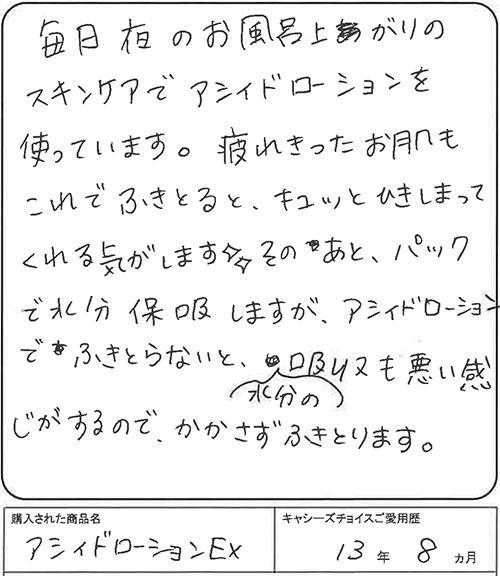 毎日夜のお風呂上あがりの
スキンケアでアシィドローションを
使っています。疲れきったお肌も
これでふきとると、キュッとひきしまって
くれる気がします☆☆そのあと、パック
で水分保吸しますが、アシィドローション
でふきとらないと、水分の吸収も悪い感
じがするので、かかさずふきとります。
購入された商品名 キャシーズチョイスご愛用歴
アシィドローションEx 13年8ヵ月